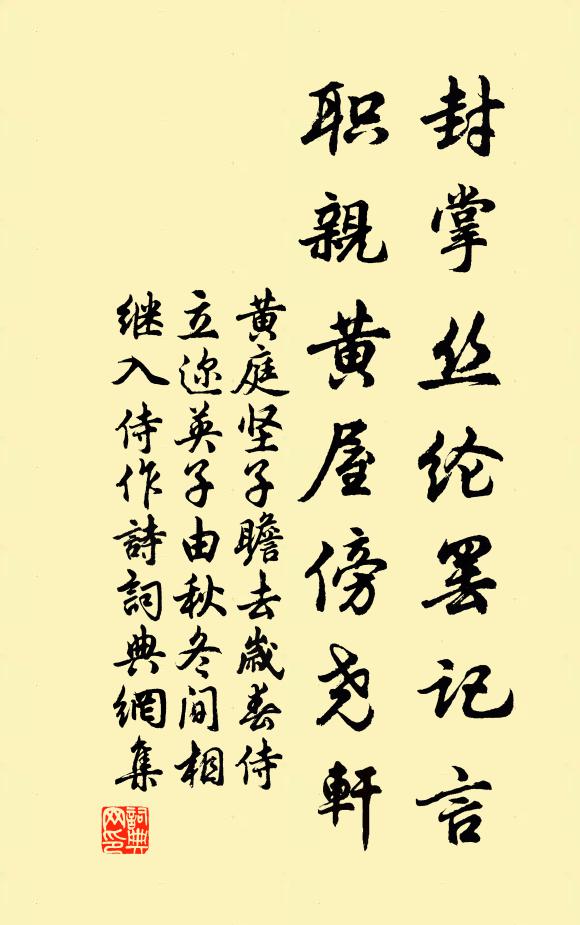 封掌丝纶罢记言
职親黄屋傍尧軒
黄庭坚子瞻去歲春侍
立迩英子由秋冬间相
继入侍作詩詞典網集
詞典网印